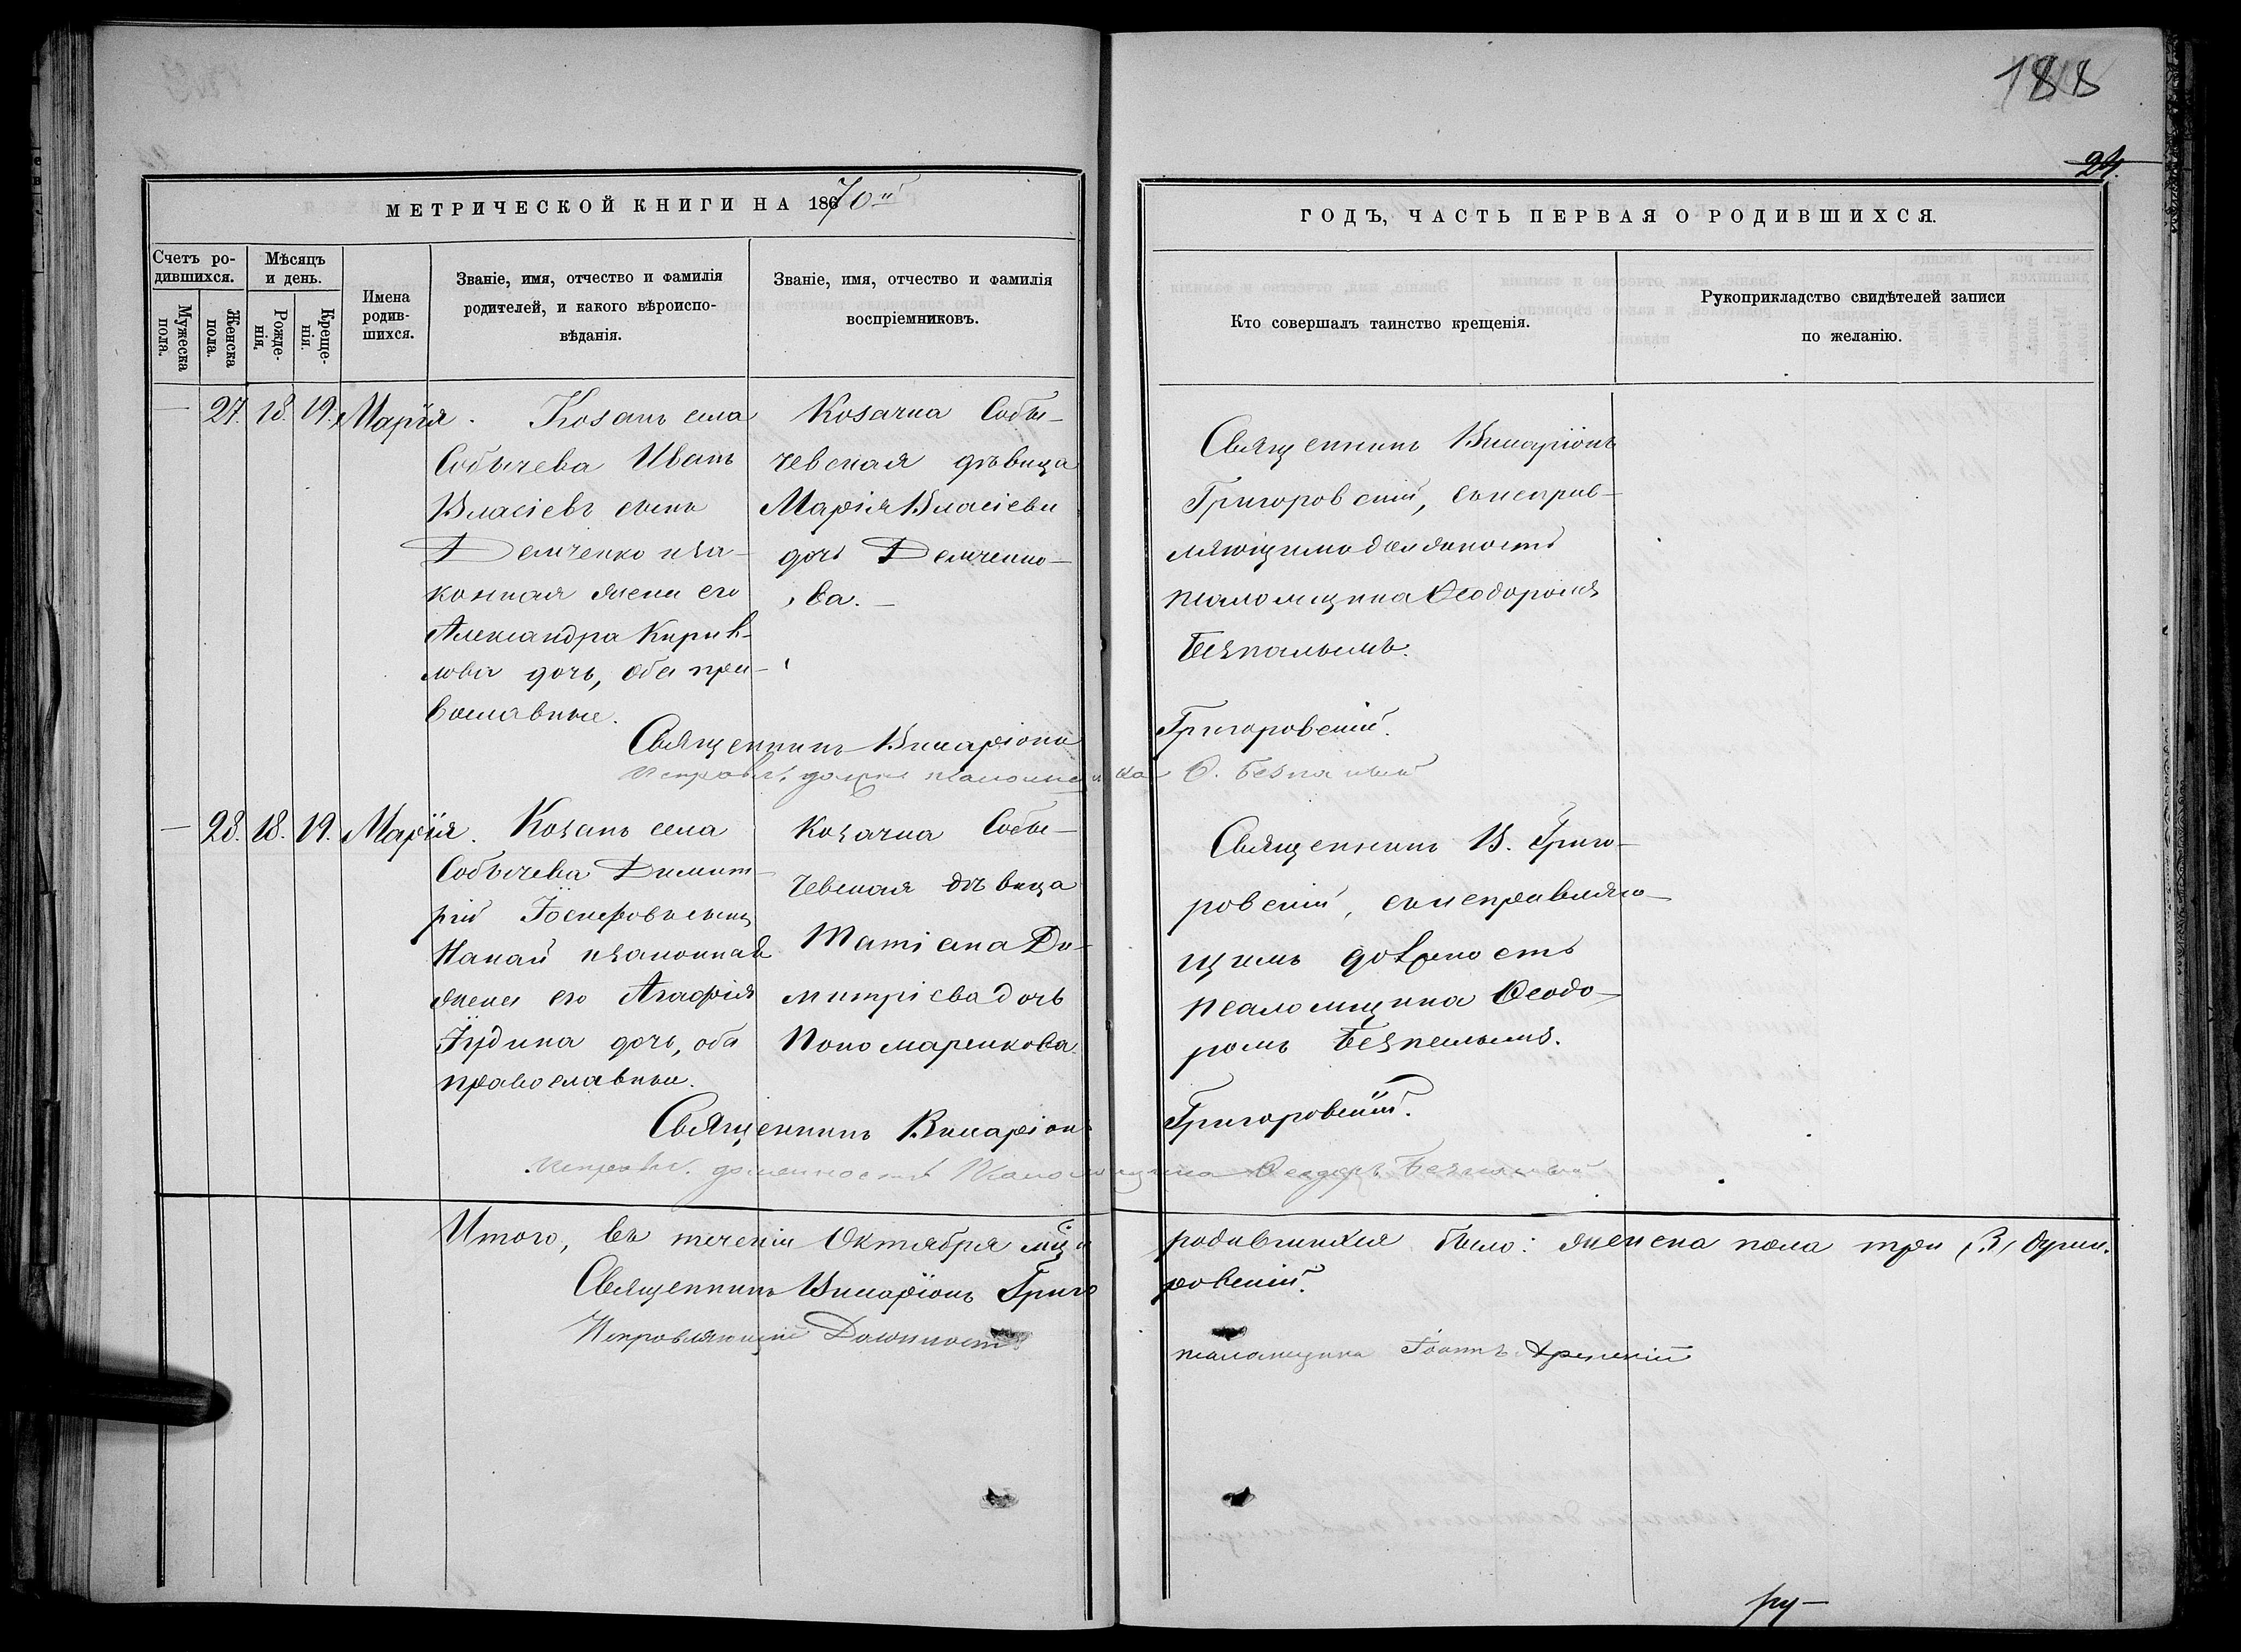 188
24.
МЕТРИЧЕСКОЙ КНИГИ НА 1870й
ГОДЪ, ЧАСТЬ ПЕРВАЯ О РОДИВШИХСЯ.
Счетъ ро-
дившихся.
Мужеска
пола.
Женска
пола.
Мѣсяцъ
и день.
Рожде-
нія.
Креще-
нія.
Имена
родив-
шихся.
Званіе, имя, отчество и фамилія
родителей, и какого вѣроиспо-
вѣданія.
Званіе, имя, отчество и фамилія
воспріемниковъ.
Кто совершалъ таинство крещенія.
Рукоприкладство свидѣтелей записи
по желанію.
— 27. 18. 19. Марія.
Козакъ села
Собычева Иванъ
Власіевъ сынъ
Демченко и за-
конная жена его
Александра Кирил-
лова дочь, оба пра-
вославные.
Козачка Собы-
чевская дѣвица
Марія Власіева
дочь Демченко-
ва.
Священникъ Иларіонъ
Григоровскій, съ исправ-
ляющимъ должность
псаломщика Ѳеодоромъ
Безпалымъ.
Священникъ Иларіонъ Григоровскій.
Исправл. должн. псаломщика Ѳ. Безпалый
— 28. 18. 19. Марія.
Козакъ села
Собычева Димит-
рій Іосифовъ сынъ
Папай и законная
жена его Агафія
Іудина дочь, оба
православные.
Козачка Собы-
чевская дѣвица
Татіана Ди-
митріева дочь
Пономаренкова.
Священникъ И. Григо-
ровскій, съ исправляю-
щимъ должность
псаломщика Ѳеодо-
ромъ Безпалымъ.
Священникъ Иларіонъ Григоровскій.
Исправл. должность Псаломщика Ѳеодоръ Безпалый
Итого, въ теченіи Октября мца родившихся было: женска пола три (3) души.
Священникъ Иларіонъ Григоровскій.
Исправляющій Должность псаломщика Іоаннъ
ру-